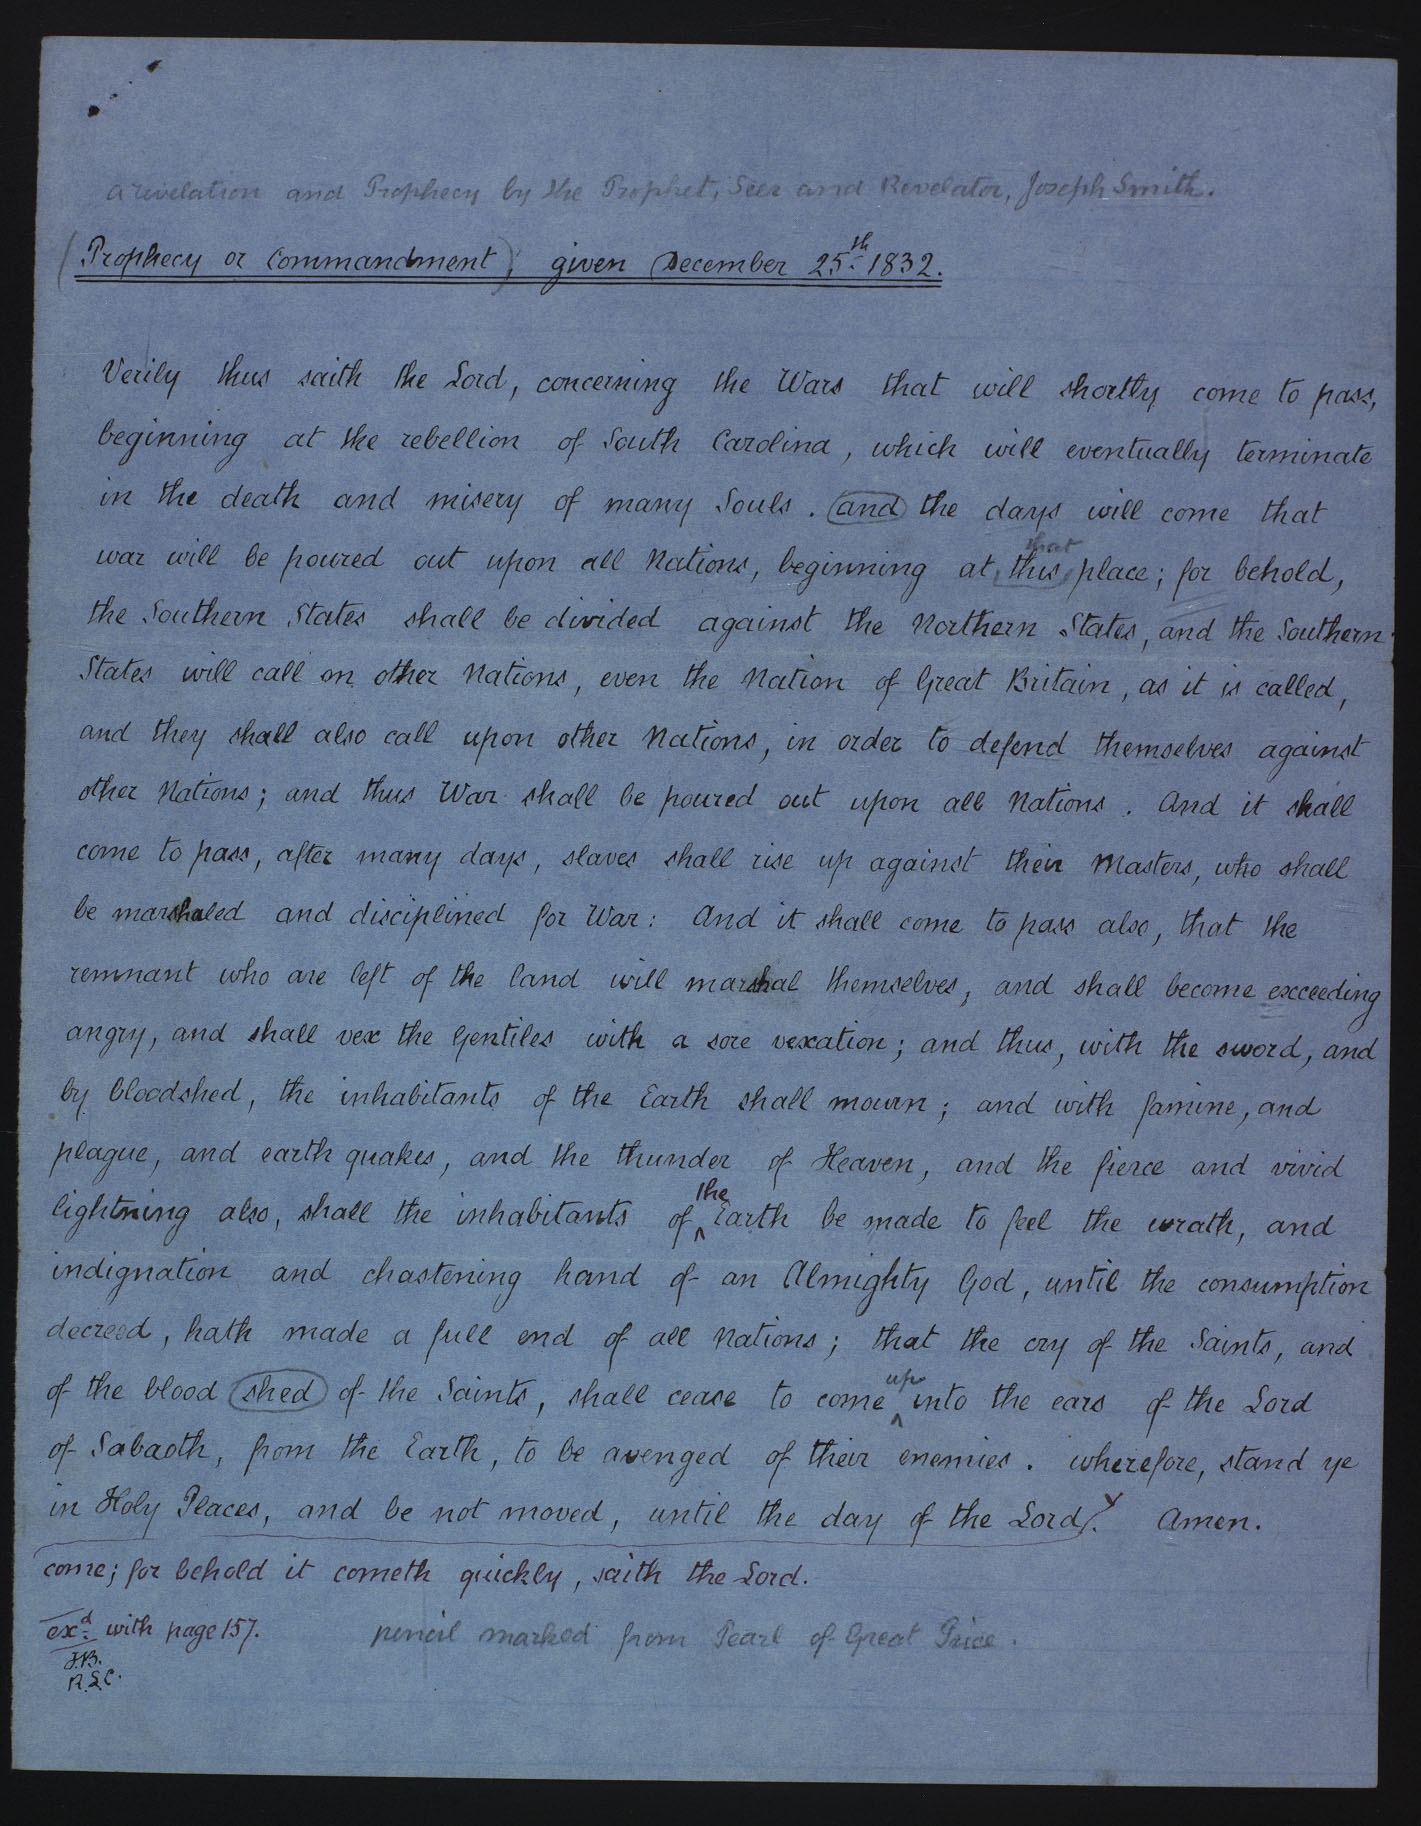 a revelation and Prophecy by the Prophet, Seer and Revelator, Joseph Smith.
(Prophecy or Commandment), given December 25th 1832.
Verily thus saith the Lord, concerning the Wars that will shortly come to pass,
beginning at the rebellion of South Carolina, which will eventually terminate
in the death and misery of many Souls. and the days will come that
that
war will be poured out upon all Nations, beginning at this place; for behold,
the Southern States shall be divided against the Northern States, and the Southern
States will call on other Nations, even the Nation of Great Britain, as it is called,
and they shall also call upon other Nations, in order to defend themselves against
other Nations; and thus War shall be poured out upon all Nations. And it shall
come to pass, after many days, slaves shall rise up against their Masters, who shall
be marshaled and disciplined for War: And it shall come to pass also, that the
remnant who are left of the land will marshal themselves, and shall become exceeding
angry, and shall vex the Gentiles with a sore vexation; and thus, with the sword, and
by bloodshed, the inhabitants of the Earth shall mourn; and with famine, and
plague, and earth quakes, and the thunder of Heaven, and the fierce and vivid
the
lightning also, shall the inhabitants of ^ Earth be made to feel the wrath, and
indignation and chastening hand of an Almighty God, until the consumption
decreed, hath made a full end of all Nations; that the cry of the Saints, and
up
of the blood shed of the Saints, shall cease to come ^ into the ears of the Lord
of Sabaoth, from the Earth, to be avenged of their enemies. wherefore, stand ye
in Holy Places, and be not moved, until the day of the Lord. Amen.
come; for behold it cometh quickly, saith the Lord.
exd with page 157. pencil marked from Pearl of Great Price.
J.B.
R.L.C.